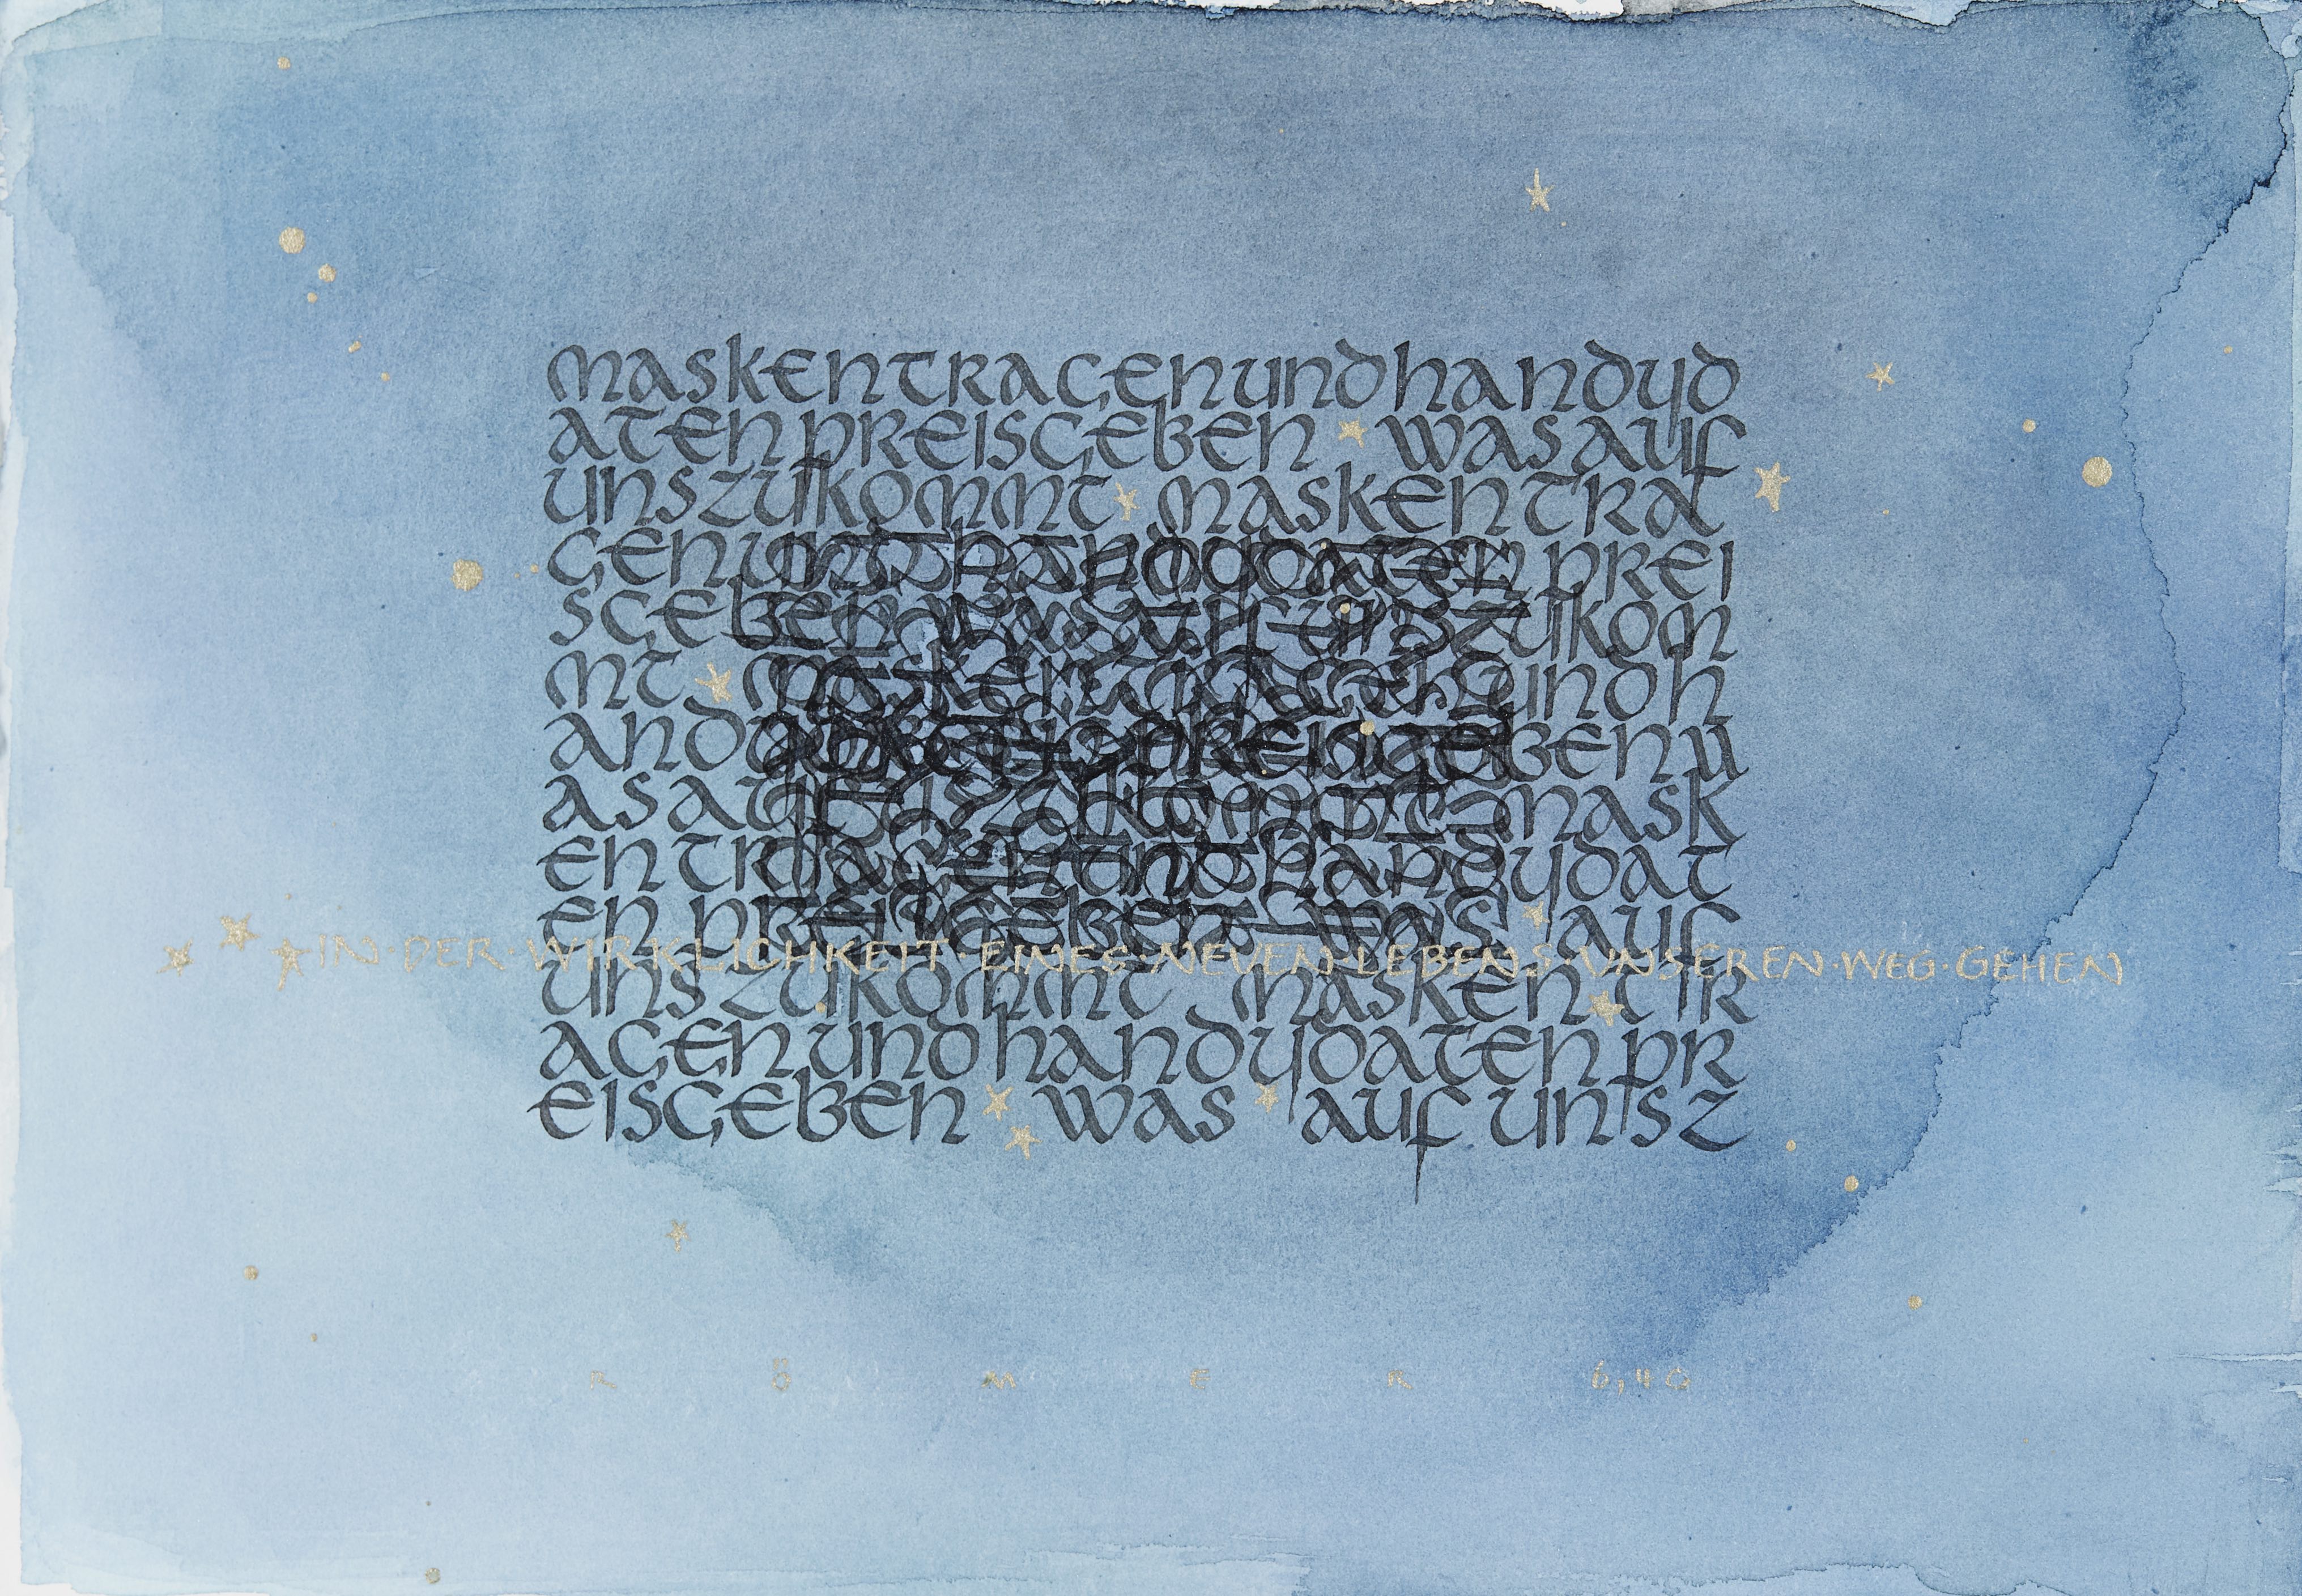 MASKENTRAGENUNDHANDYD
ATENPREISGEBEN WASAUF
UNSZUKOMMT MASKENTRA
GENUNDHANDYDATENPREI
SGEBENWASAUFUNSZUKOM
MT MASKENTRAGENUNDH
ANDY BENW
ASAUF MASK
ENTRAGENUNDHANDYDAT
EN PREISGEBEN WAS AUF
IN·DER·WIRKLICHKEIT·EINES·NEUEN·LEBENS·UNSEREN·WEG·GEHEN
UNSZUKOMMT MASKENTR
AGENUNDHANDYDATENPR
EISGEBEN WAS AUF UNS Z
RÖMER 6,4